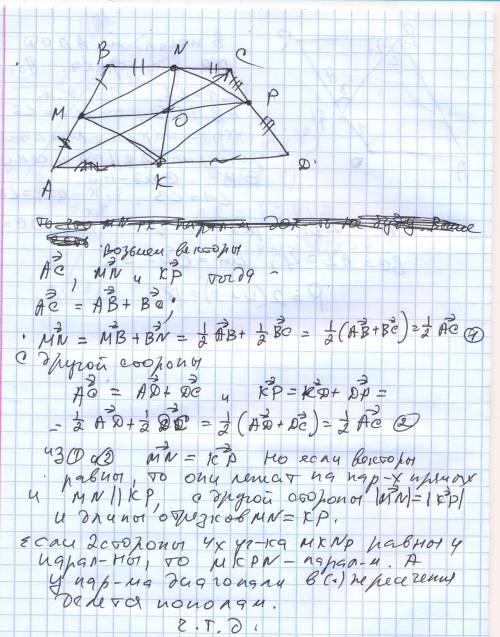 B N C
M O P
A K D
возьмем векторы
AC, MN и KP тогда
AC = AB + BC;
MN = MB + BN = 1/2 AB + 1/2 BC = 1/2 (AB + BC) = 1/2 AC ①
С другой стороны
AC = AD + DC и KP = KD + DP =
= 1/2 AD + 1/2 DC = 1/2 (AD + DC) = 1/2 AC ②
из ① и ② MN = KP Но если векторы
равны, то они лежат на пар-х прямых
и MN || KP, с другой стороны |MN| = |KP|
и длины отрезков MN = KP.
если 2 стороны 4х уг-ка MKNP равны и
парал-ны, то MKPN - парал-м. А
у пар-ма диагонали в (·) пересечения
делятся пополам.
ч.т.д.